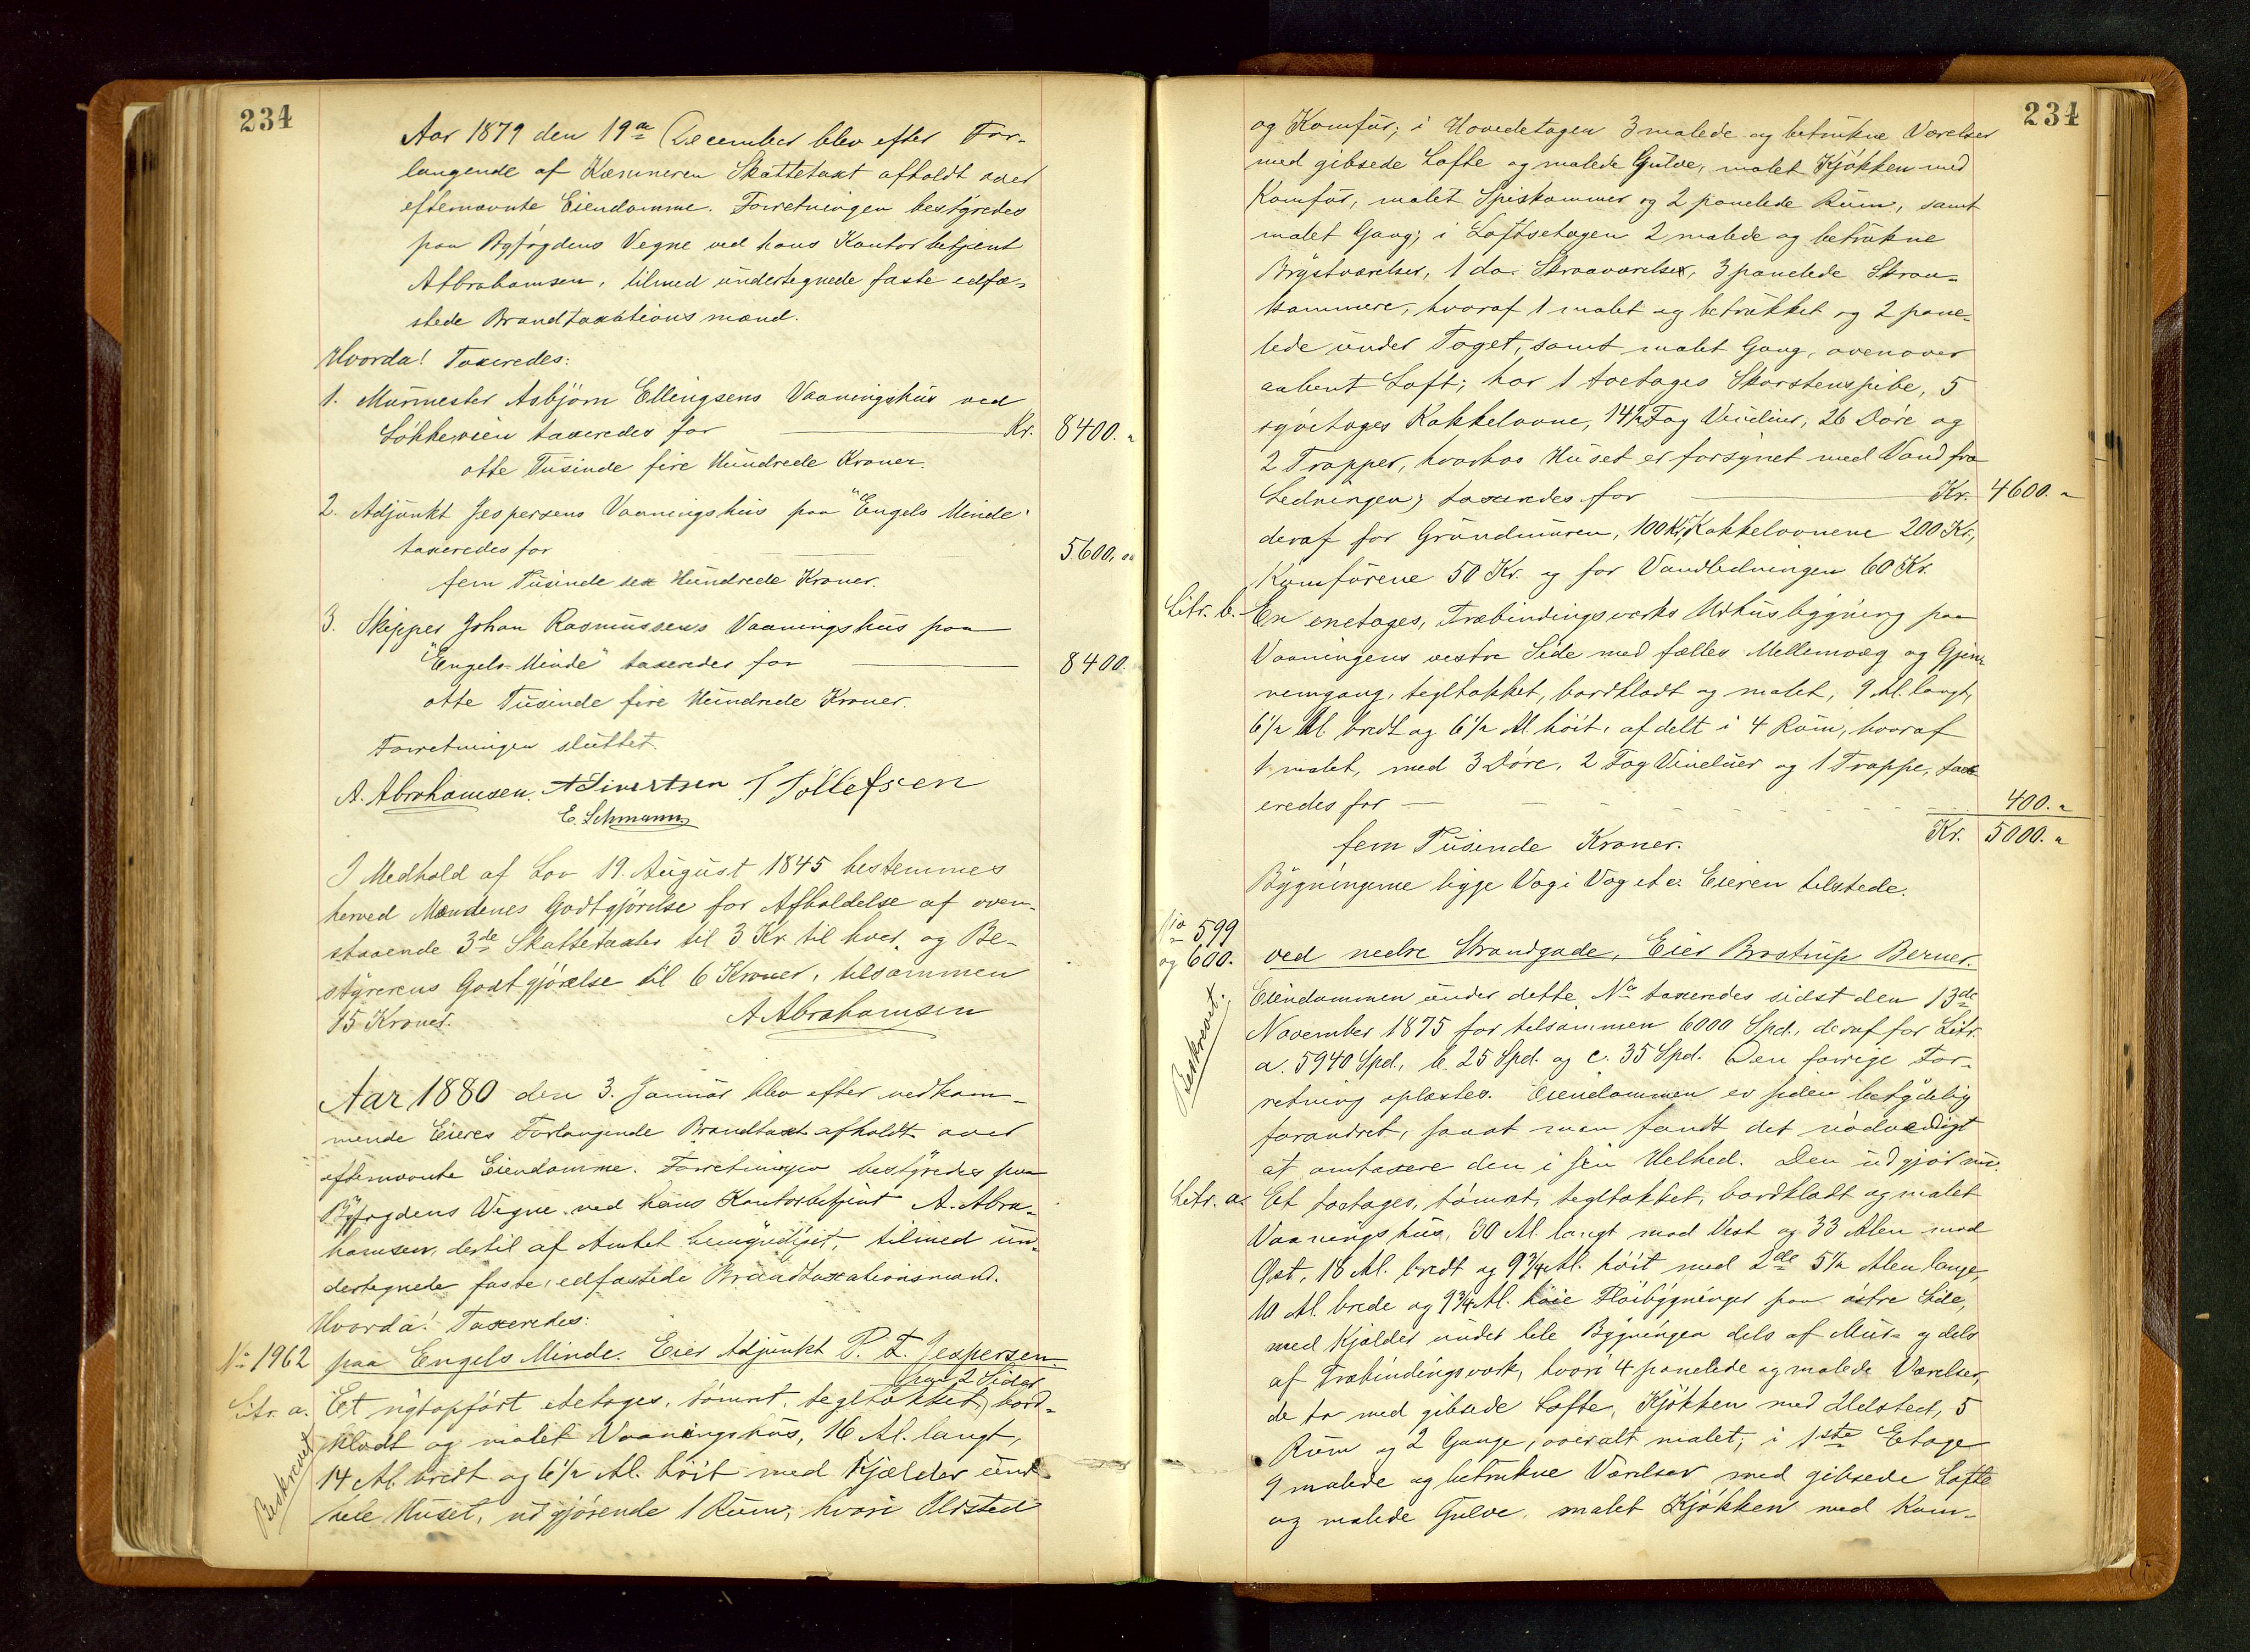 234
Aar 1879 den 19de December blev efter For-
langende af Kæmneren Skattetaxt afholdt over
eftenævnte Eiendomme. Forretningen bestyredes
paa Byfogdens Vegne ved hans Kontorbetjent
A Abrahamsen, tilmed undertegnede faste edfæ-
stede Brandtaxationsmænd.
Hvorda! Taxeredes:
1. Murmester Asbjörn Ellingsens Vaaningshus ved
Lökkeveien taxeredes for Kr. 8400. "
otte Tusinde fire Hundrede Kroner.
2. Adjunkt Jespersens Vaaningshus paa "Engels Minde"
taxeredes for 5600, "
fem Tusinde sex Hundrede Kroner.
3. Skipper Johan Rasmussens Vaaningshus paa
"Engels-Minde" taxeredes for 8400.
otte Tusinde fire Hundrede Kroner.
Forretningen sluttet.
A. Abrahamsen. A Sivertsen T Tollefsen
E. Lehmann
I Medhold af Lov 19. August 1845 bestemmes
herved Mændenes Godtgjörelse for Afholdelse af oven-
staaende 3de Skattetaxter til 3 Kr til hver, og Be-
styrerens Godtgjörelse til 6 Kroner, tilsammen
15 Kroner. A Abrahamsen
Aar 1880 den 3. Januar blev efter vedkom-
mende Eieres Forlangende Brandtaxt afholdt over
eftenævnte Eiendomme. Forretningen bestyredes paa
Byfogdens Vegne ved hans Kontorbetjent A. Abra-
hamsen, dertil af Amtet bemyndiget, tilmed un-
dertegnede faste, edfæstede Brandtaxationsmænd.
Hvorda! Taxeredes:
No 1962 paa Engels Minde. Eier Adjunkt P. T. Jespersen.
paa 2 Sider
Litr. a. Et nyt opfört etetages, tömret, tegltækket, bord-
klædt og malet Vaaningshus, 16 Al. langt,
14 Al. bredt og 6 1/2 Al. höit med Kjælder under
hele Huset, udgjörende 1 Rum, hvori Ildsted
Beskrevet
234
og Komfur; i Hovedetagen 3 malede og betrukne Værelser
med gibsede Lofte og malede Gulve, malet Kjökken med
Komfur, malet Spiskammer og 2 panelede Rum, samt
malet Gang; i Loftsetagen 2 malede og betrukne
Brystværelser, 1 do. Skraaværelse, 3 panelede Skraa-
kammere, hvoraf 1 malet og betrukket og 2 pane-
lede under Taget, samt malet Gang, ovenover
aabent Loft; har 1 toetages Skorstenspibe, 5
syvetages Kakkelovne, 14 1/2 Fag Vinduer, 26 Döre og
2 Trapper, hvorhos Huset er forsynet med Vand fra
Ledningen; taxeredes for Kr. 4600. "
deraf for Grundmuren, 100 Kr, Kakkelovnene 200 Kr,
Komfurene 50 Kr. og for Vandledningen 60 Kr.
Litr. b. En enetages, Træbindingsværks Udhusbygning paa
Vaaningens vestre Side med fælles Mellemvæg og Gjen-
nemgang, tegltækket, bordklædt og malet, 9 Al. langt,
6 1/2 Al. bredt og 6 1/2 Al. höit, afdelt i 4 Rum, hvoraf
1 malet, med 3 Döre, 2 Fag Vinduer og 1 Trappe, tax-
eredes for 400. "
fem Tusinde Kroner. Kr. 5000. "
Bygningerne ligge Væg i Væg etc. Eieren tilstede.
No 599
og 600. ved nedre Strandgade, Eier Brostrup Berner.
Eiendommen under dette No taxeredes sidst den 13de
November 1875 for tilsammen 6000 Spd., deraf for Litr.
a. 5940 Spd., b. 25 Spd. og c. 35 Spd. Den forrige For-
retning oplæstes. Eiendommen er siden betydelig
forandret, saaat man fandt det nödvendigt
at omtaxere den i sin Helhed. Den udgjör nu:
Beskrevet.
Litr. a. Et toetages, tömret, tegltækket, bordklædt og malet
Vaaningshus, 30 Al. langt mod Vest og 33 Alen mod
Öst, 18 Al. bredt og 9 3/4 Al. höit med 2de 5 1/2 Alen lange,
10 Al. brede og 9 3/4 Al. höie Flöibygninger paa östre Side,
med Kjælder under hele Bygningen dels af Mur- og dels
af Træbindingsværk, hvori 4 panelede og malede Værelser,
de to med gibsede Lofte, Kjökken med Ildsted, 5
Rum og 2 Gange, overalt malet; i 1ste Etage
9 malede og betrukne Værelser med gibsede Lofte
og malede Gulve, malet Kjökken med Kom-